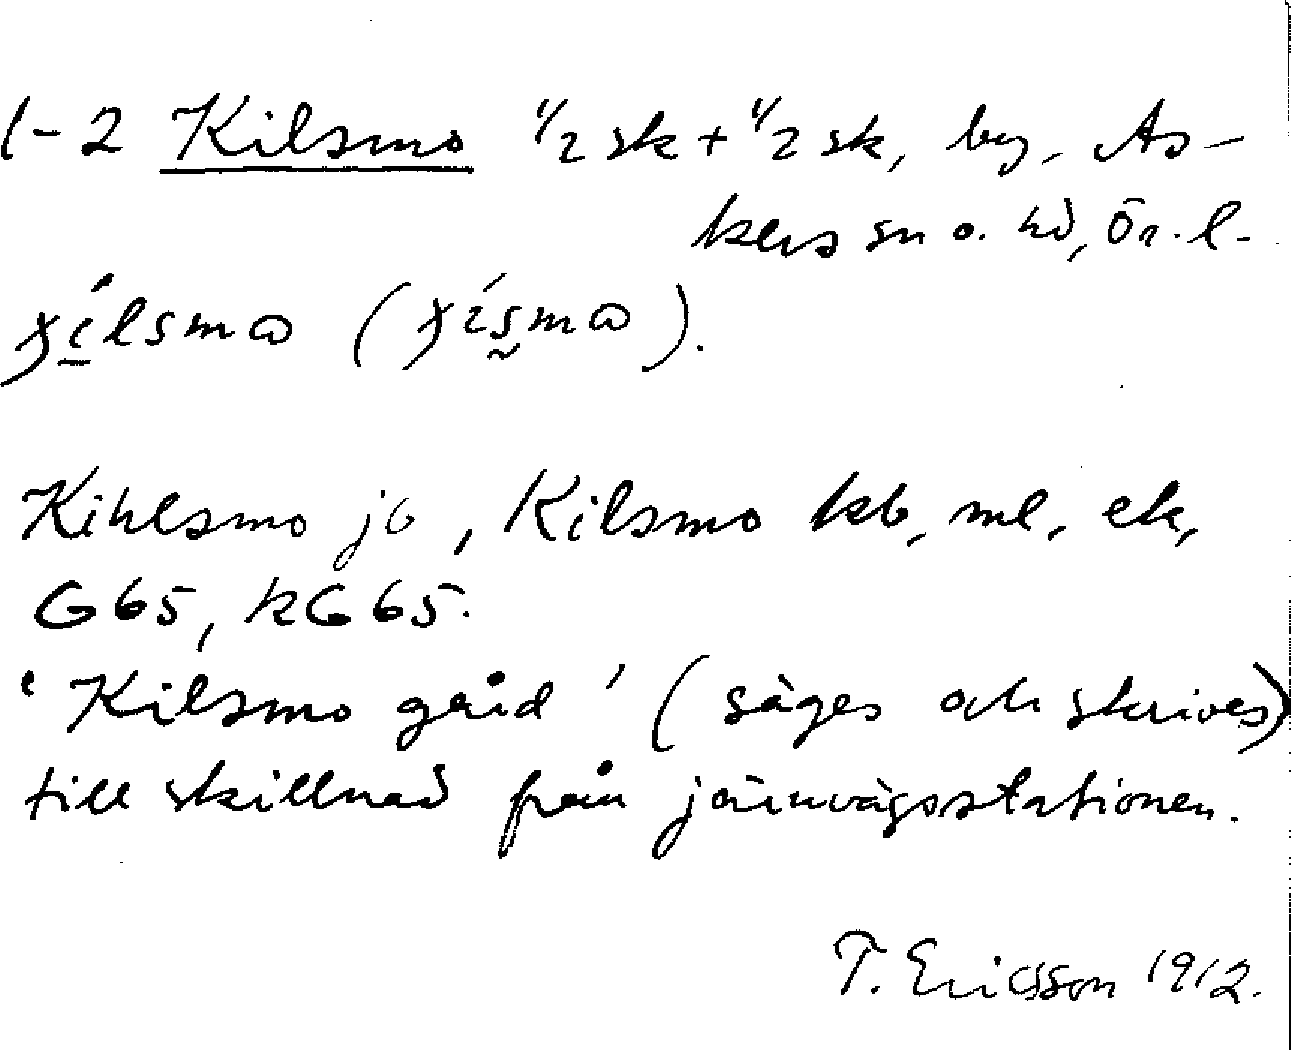 1-2 Kilsmo 1/2 sk + 1/2 sk, by, As-
kers sn o. hd, Ör. l.
Kihlsmo jb, Kilsmo kb, ml, ek,
G65, kG65.
'Kilsmo gård' (säges och skrives)
till skillnad från järnvägsstationen.
T. Ericsson 1912.